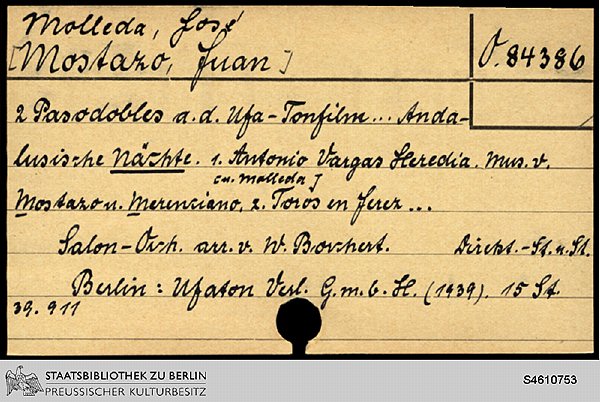 Molleda, José
[Mostazo, Juan]
O. 84386
2 Pasodobles a. d. Ufa-Tonfilm... Anda-
lusische Nächte. 1. Antonio Vargas Heredia. Mus. v.
[u. Molleda]
Mostazo u. Merenciano, 2. Toros en Jerez ...
Salon-Orch. arr. v. W. Borchert. Direkt.-St. u. St.
Berlin: Ufaton Verl. G. m. b. H. (1939). 15 St.
39.911
STAATSBIBLIOTHEK ZU BERLIN
PREUSSISCHER KULTURBESITZ
S4610753